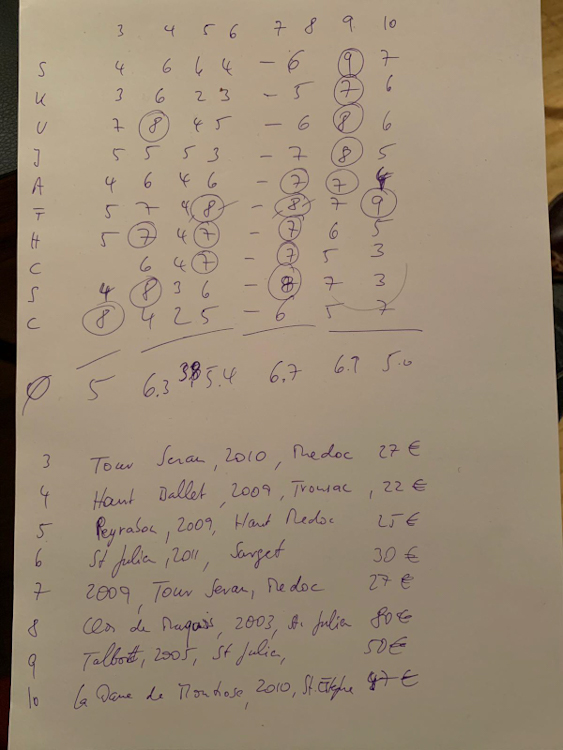 3 4 5 6 7 8 9 10
S 4 6 4 4 - 6 9 7
K 3 6 2 3 - 5 7 6
U 7 8 4 5 - 6 8 6
J 5 5 5 3 - 7 8 5
A 4 6 4 6 - 7 7
T 5 7 4 8 - 8 7 9
H 5 7 4 7 - 7 6 5
C 6 4 7 - 7 5 3
S 4 8 3 6 - 8 7 3
C 8 4 2 5 - 6 5 7
Ø 5 6.3 5.4 6.7 5.0
3 Tour Seran, 2010, Medoc 27 €
4 Haut Ballet, 2009, Fronsac, 22 €
5 2009, Haut Medoc 25 €
6 St Julien, 2011, Sarget 30 €
7 2009, Tour Seran, Medoc 27 €
8 Clos de Marquis, 2003, St. Julien 80 €
9 Talbott, 2005, St Julien, 50 €
10 La Dame de Montrose, 2010, St. Estephe 47 €